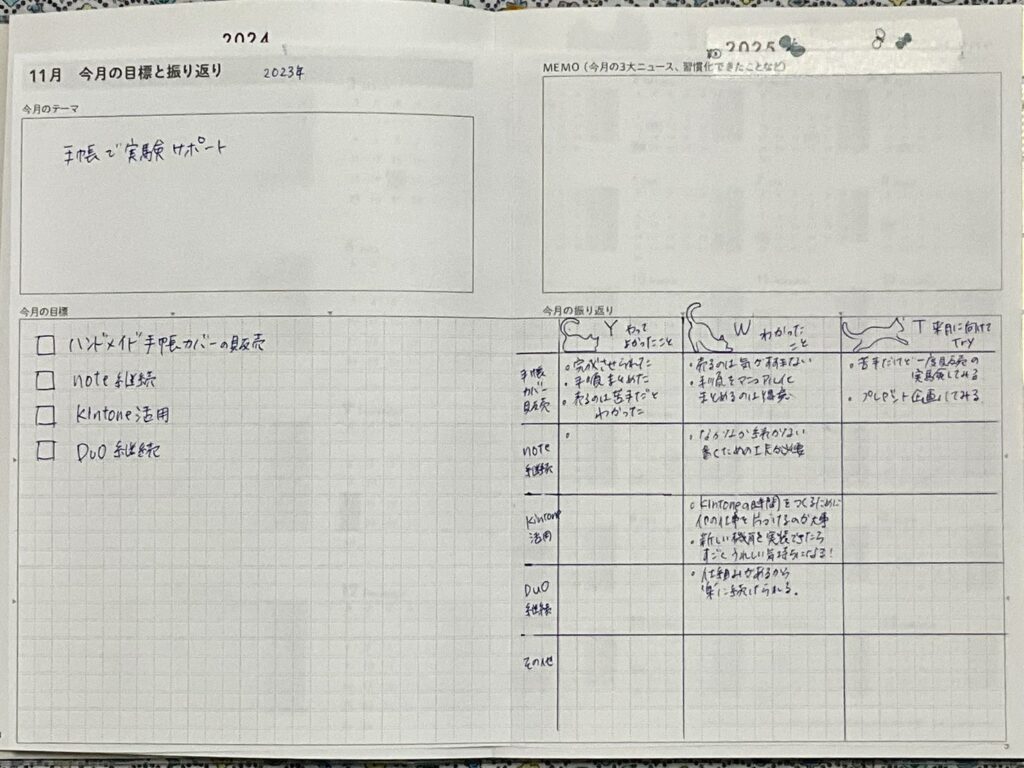 2024
11月 今月の目標と振り返り 2023年
今月のテーマ
手帳で実験サポート
今月の目標
ハンドメイド手帳カバーの販売
note 継続
Kintone 活用
DUO 継続
2025
MEMO（今月の3大ニュース、習慣化できたことなど）
今月の振り返り
Y やって
よかったこと
W わかった
こと
T 来月に向けて
Try
手帳
カバー
販売
完成させられた
手順まとめた
売るのは苦手だと
わかった
売るのは気が
手順をマニュアル化
まとめるのは
苦手だけど一度販売の
実験してみる
プレゼント企画してみる
note
継続
なかなか続かない
書くための工夫が必要
Kintone
活用
Kintoneの時間をつくるために
他の仕事を片づけるのが大事
新しい機能を実装できたら
すごくうれしい気持ちになる！
DUO
継続
仕組みがあるから
楽に続けられる。
その他
3